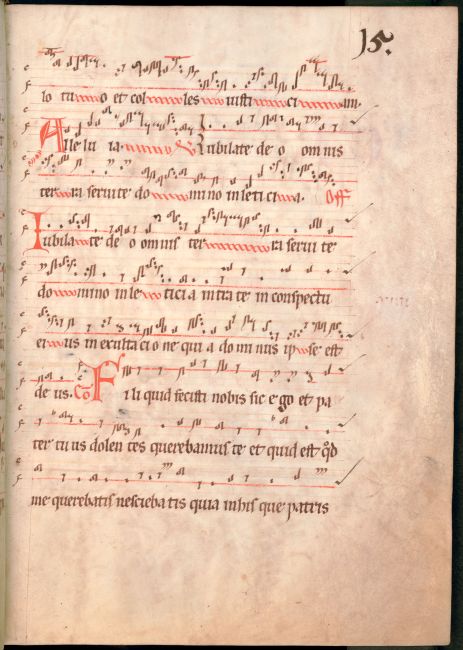 15.
lo tu o et col les iusti ci am
Alle lu ia ℣ Iubilate de o omnis
ter ra seruite do mino in leticia. Off
Iubila te de o omnis ter ra serui te
do mino in le ticia intra te in conspectu
ei us in exulta cio ne qui a do mi nus ip se est
de us. Co Fi li quid fecisti nobis sic ego et pa
ter tu us dolen tes querebamus te et quid est qd
me querebatis nescieba tis quia in his que patris